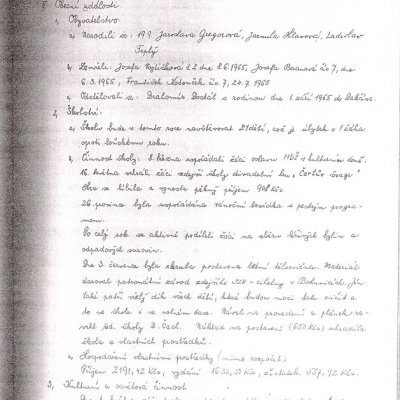 Obecní události.
1, Obyvatelstvo:
a, Narodili se: Jaroslava Gregorová, Jarmila Hlavová, Ladislav
Teplý
b, Zemřeli: Josefa č.2 dne 8.6.1965, Josefa č.o 7, dne
6.3.1965, František č.o.7, 24.7.1965
c, Odstěhovali se: Drahomír Dostál s rodinou dne 1. září 1965 do
2, Školství:
a, Školu bude v tomto roce navštěvovat 21 dětí, což je úbytek o 1 žáka
oproti loňskému roku.
b, Činnost školy: 8. března uspořádali žáci oslavu MDŽ v kulturním domě.
16. května sehráli žáci zdejší školy divadelní hru "Čertův švagr"
Hra se líbila a vynesla pěkný příjem Kčs.
26. prosince byla uspořádána vánoční besídka s pestrým progra-
mem.
Po celý rok se aktivně podíleli žáci na sběru léčivých bylin a
odpadových surovin.
Dne 3. července byla zkrabu postavena letní tělocvična. Materiál
daroval patronátní závod zdejšího JZD - cihelny v Bohunicích. Jim
také patří vřelý dík všech dětí, které budou moci tak cvičit a
to ve škole i ve volném čase. Návrh na provedení a plánek na-
vrhl řed. školy B. Čachl. Náklad na postavení (650 Kčs) uhradila
škola z vlastních prostředků.
c, Hospodaření vlastními prostředky (mimo rozpočet)
Příjem 2191,42 Kčs, vydání Kčs, zůstatek Kčs.
3, Kulturní a osvětová činnost